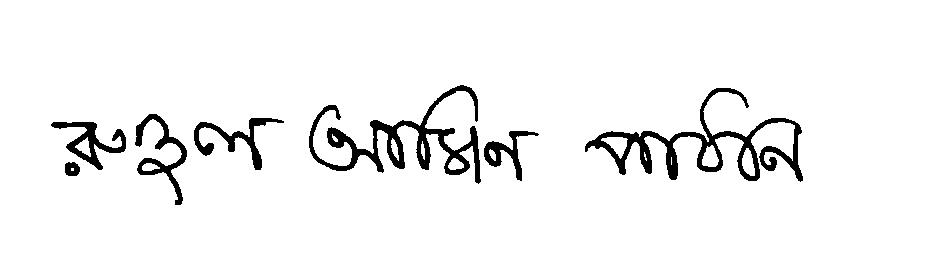 রুহুল আমিন পাঠান